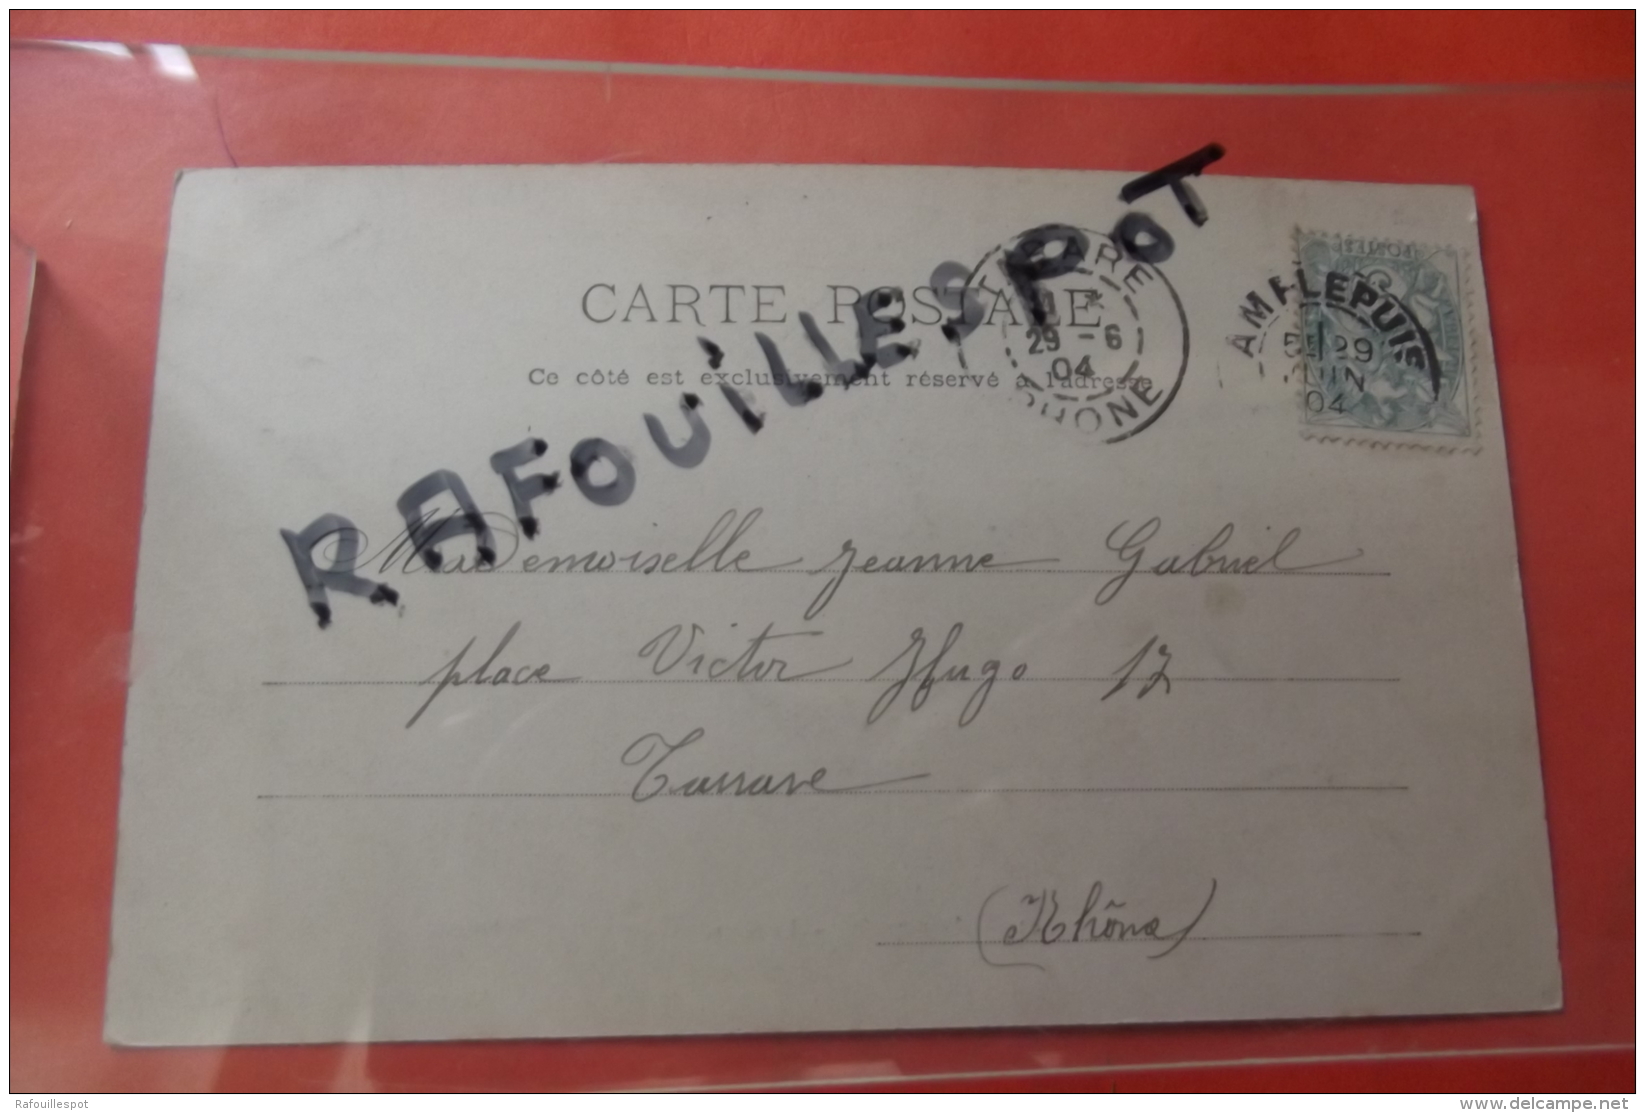 CARTE POSTALE
Ce côté est exclusivement réservé à l'adresse
RAFOUILLESPOT
TARARE
29 - 6
04
RHONE
AMPLEPUIS
29
JUIN
04
Mademoiselle Jeanne Gabriel
place Victor Hugo 17
Tarare
(Rhône)
Rafouillespot
delcampe.net